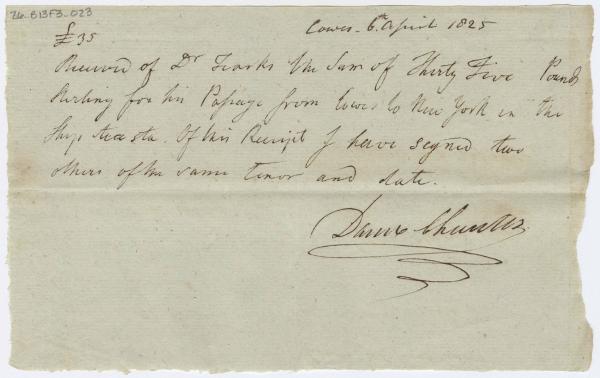 Z6.B13F3.023
Cowes 6th April 1825
£35
Received of Dr the Sum of Thirty Five Pounds
Sterling for his Passage from Cowes to New York in the
Ship Acasta. Of this Receipt I have signed two
others of the same tenor and date.